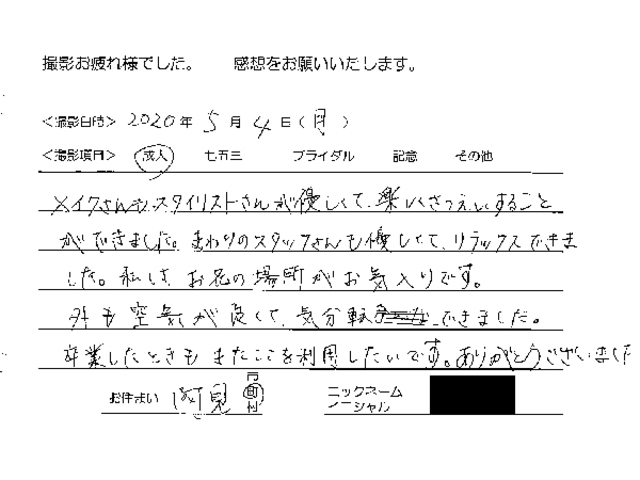 撮影お疲れ様でした。 感想をお願いいたします。
<撮影日時> 2020年 5月 4日(月)
<撮影項目> 成人 七五三 ブライダル 記念 その他
メイクさんもスタイリストさんが優しくて、楽しくさつえいすること
ができました。まわりのスタッフさんも優しくて、リラックスできま
した。私は、お花の場所がお気入りです。
外も空気が良くて、気分転 できました。
卒業したときもまたここを利用したいです。ありがとうございました
お住まい 阿見 市町村 ニックネーム
イニシャル